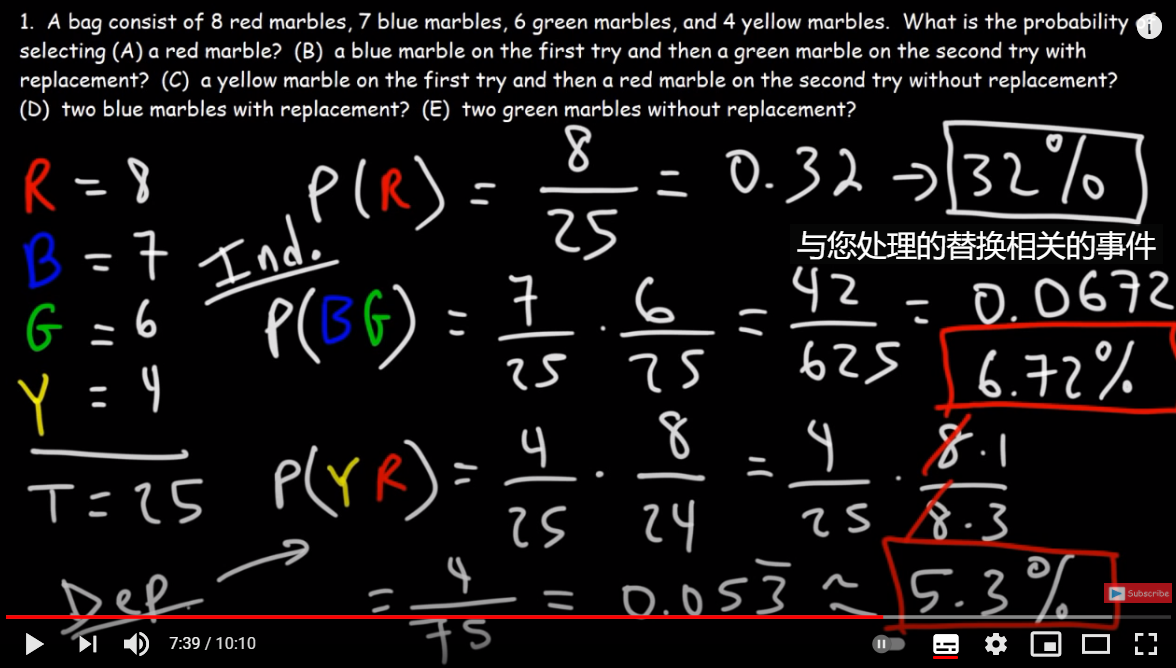 1. A bag consist of 8 red marbles, 7 blue marbles, 6 green marbles, and 4 yellow marbles. What is the probability of
selecting (A) a red marble? (B) a blue marble on the first try and then a green marble on the second try with
replacement? (C) a yellow marble on the first try and then a red marble on the second try without replacement?
(D) two blue marbles with replacement? (E) two green marbles without replacement?
R = 8
P(R) = 8/25 = 0.32 → 32%
与您处理的替换相关的事件
B = 7
Ind.
P(BG) = 7/25 · 6/25 = 42/625 = 0.0672
6.72%
G = 6
Y = 4
T = 25
P(YR) = 4/25 · 8/24 = 4/25 · 8·1/8·3
Dep.
= 4/75 = 0.053̅ ≈ 5.3%
Subscribe
7:39 / 10:10